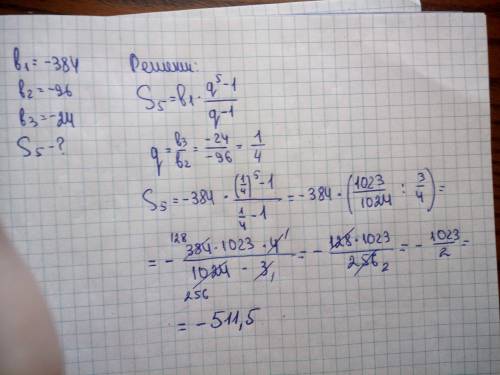 b₁ = -384
b₂ = -96
b₃ = -24
S₅ - ?
Решени:
S₅ = b₁ · (q⁵-1)/(q-1)
q = b₃/b₂ = -24/-96 = 1/4
S₅ = -384 · ((1/4)⁵-1)/(1/4-1) = -384 · (1023/1024 : 3/4) =
= - (384 · 1023 · 4)/(1024 - 3) = - (128 · 1023)/256 = - 1023/2 =
= -511,5